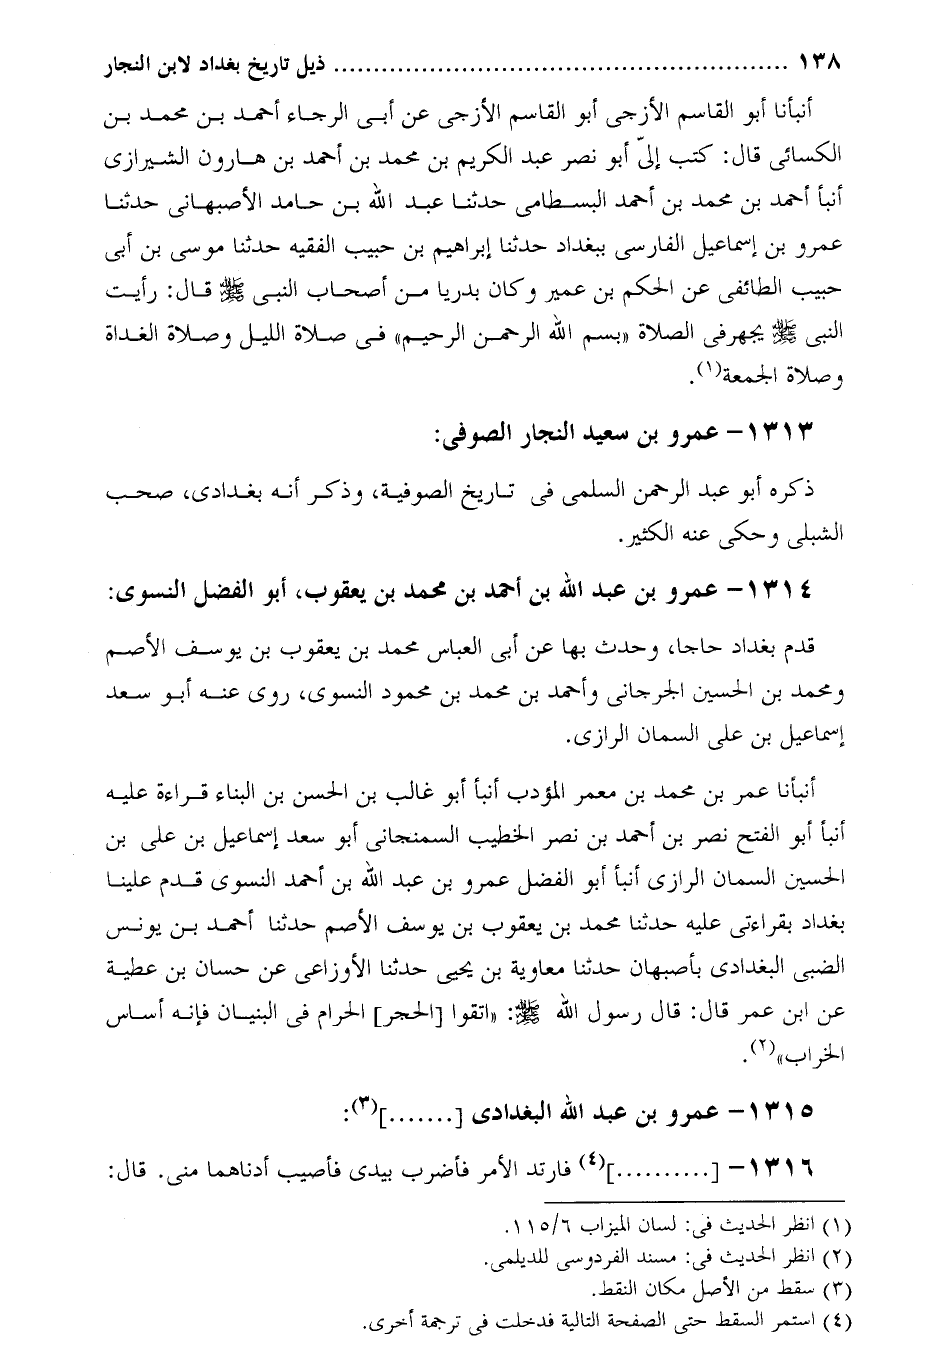 ١٣٨ ........................................................ ذيل تاريخ بغداد لابن النجار
أنبأنا أبو القاسم الأزجى أبو القاسم الأزجى عن أبى الرجاء أحمد بن محمد بن
الكسائى قال: كتب إلىّ أبو نصر عبد الكريم بن محمد بن أحمد بن هارون الشيرازى
أنبأ أحمد بن محمد بن أحمد البسطامى حدثنا عبد الله بن حامد الأصبهانى حدثنا
عمرو بن إسماعيل الفارسى ببغداد حدثنا إبراهيم بن حبيب الفقيه حدثنا موسى بن أبى
حبيب الطائفى عن الحكم بن عمير وكان بدريا من أصحاب النبى ﷺ قال: رأيت
النبى ﷺ يجهرفى الصلاة «بسم الله الرحمن الرحيم» فى صلاة الليل وصلاة الغداة
وصلاة الجمعة(١).
١٣١٣- عمرو بن سعيد النجار الصوفى:
ذكره أبو عبد الرحمن السلمى فى تاريخ الصوفية، وذكر أنه بغدادى، صحب
الشبلى وحكى عنه الكثير.
١٣١٤- عمرو بن عبد الله بن أحمد بن محمد بن يعقوب، أبو الفضل النسوى:
قدم بغداد حاجا، وحدث بها عن أبى العباس محمد بن يعقوب بن يوسف الأصم
ومحمد بن الحسين الجرجانى وأحمد بن محمد بن محمود النسوى، روى عنه أبو سعد
إسماعيل بن على السمان الرازى.
أنبأنا عمر بن محمد بن معمر المؤدب أنبأ أبو غالب بن الحسن بن البناء قراءة عليه
أنبأ أبو الفتح نصر بن أحمد بن نصر الخطيب السمنجانى أبو سعد إسماعيل بن على بن
الحسين السمان الرازى أنبأ أبو الفضل عمرو بن عبد الله بن أحمد النسوى قدم علينا
بغداد بقراءتى عليه حدثنا محمد بن يعقوب بن يوسف الأصم حدثنا أحمد بن يونس
الضبى البغدادى بأصبهان حدثنا معاوية بن يحيى حدثنا الأوزاعى عن حسان بن عطية
عن ابن عمر قال: قال رسول الله ﷺ: «اتقوا [الحجر] الحرام فى البنيان فإنه أساس
الخراب»(٢).
١٣١٥- عمرو بن عبد الله البغدادى [.......](٣):
١٣١٦- [..........](٤) فارتد الأمر فأضرب بيدى فأصيب أدناهما منى. قال:
(١) انظر الحديث فى: لسان الميزاب ١١٥/٦.
(٢) انظر الحديث فى: مسند الفردوسى للديلمى.
(٣) سقط من الأصل مكان النقط.
(٤) استمر السقط حتى الصفحة التالية فدخلت فى ترجمة أخرى.